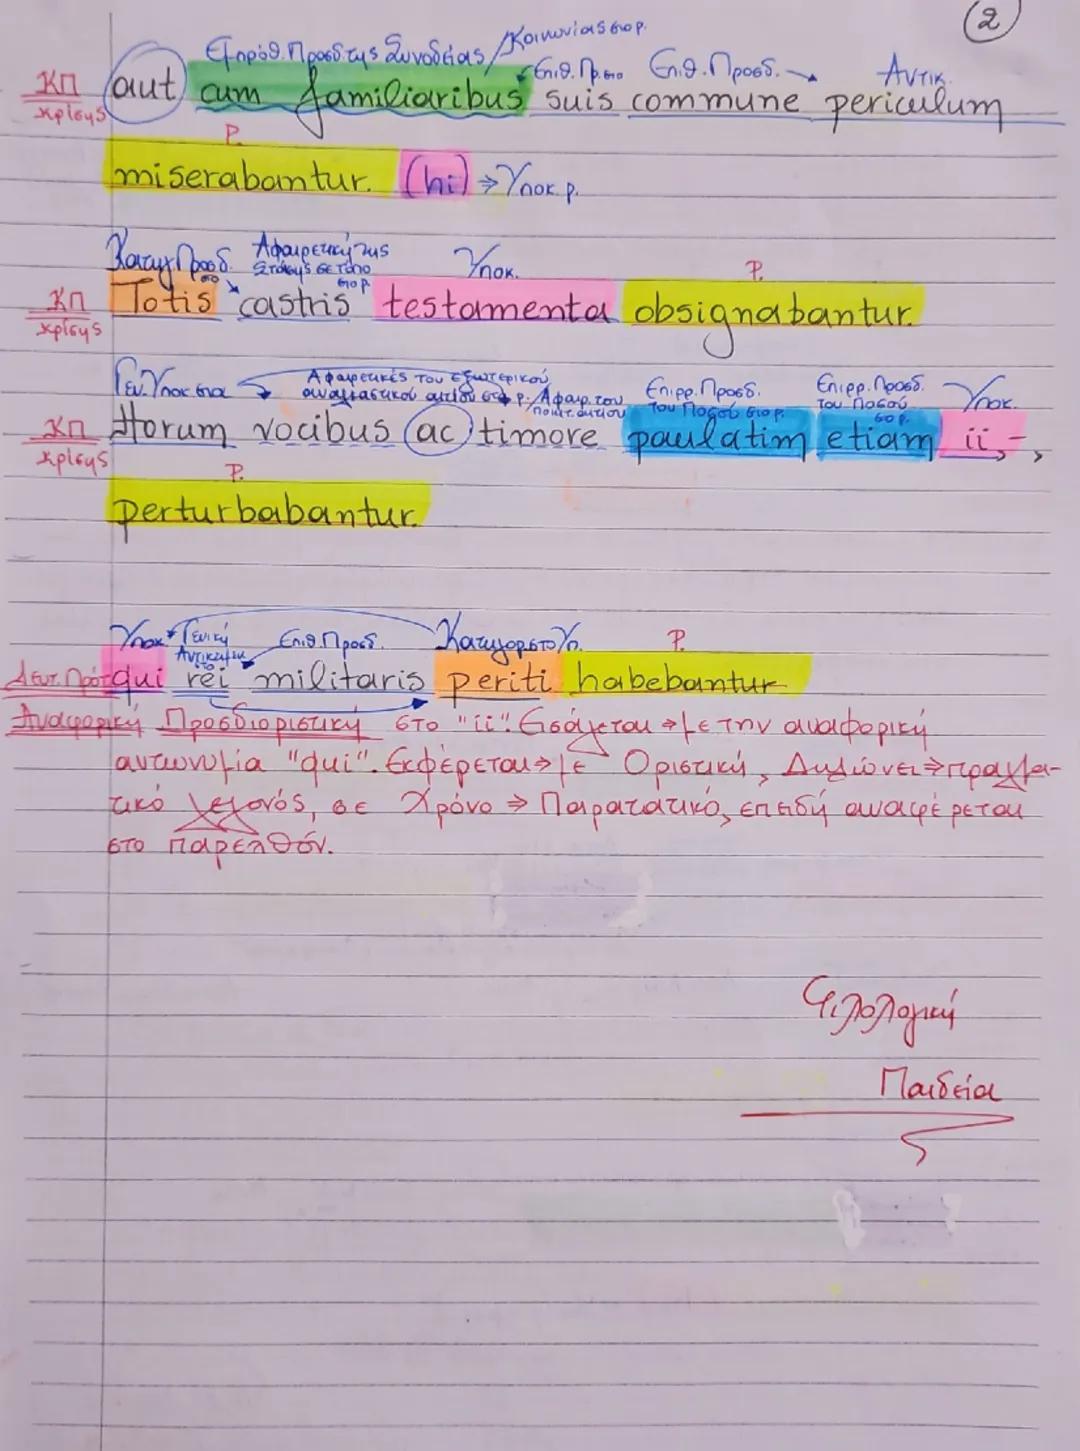 2
Εμπρόθ. Προσδ. της Συνοδείας / Κοινωνίας στο ρ.
Επιθ. Πρ. στο Επιθ. Προσδ. → Αντικ.
ΚΠ κρίσης aut cum familiaribus suis commune periculum
Ρ.
miserabantur. (hi) → Υποκ. ρ.
Κατηγ. Προσδ. στο Αφαιρετική της στάσης σε τόπο στο ρ. Υποκ. Ρ.
ΚΠ κρίσης Totis castris testamenta obsignabantur.
Γεν. Υποκ. στα Αφαιρετικές του εξωτερικού αναγκαστικού αιτίου στο ρ. / Αφαιρ. του ποιητ. αιτίου Επιρρ. Προσδ. του Ποσού στο ρ. Επιρρ. Προσδ. του Ποσού στο ρ. Υποκ.
ΚΠ κρίσης Horum vocibus ac timore paulatim etiam ii -,
Ρ.
perturbabantur.
Υποκ. Γενική Αντικειμ. στο Επιθ. Προσδ. Κατηγορ. στο Υπ. Ρ.
Δευτ. Πρότ. qui rei militaris periti habebantur
Αναφορική Προσδιοριστική στο "ii". Εισάγεται → με την αναφορική
αντωνυμία "qui". Εκφέρεται → με Οριστική, Δηλώνει → πραγμα-
τικό γεγονός, σε Χρόνο → Παρατατικό, επειδή αναφέρεται
στο παρελθόν.
Φιλολογική
Παιδεία